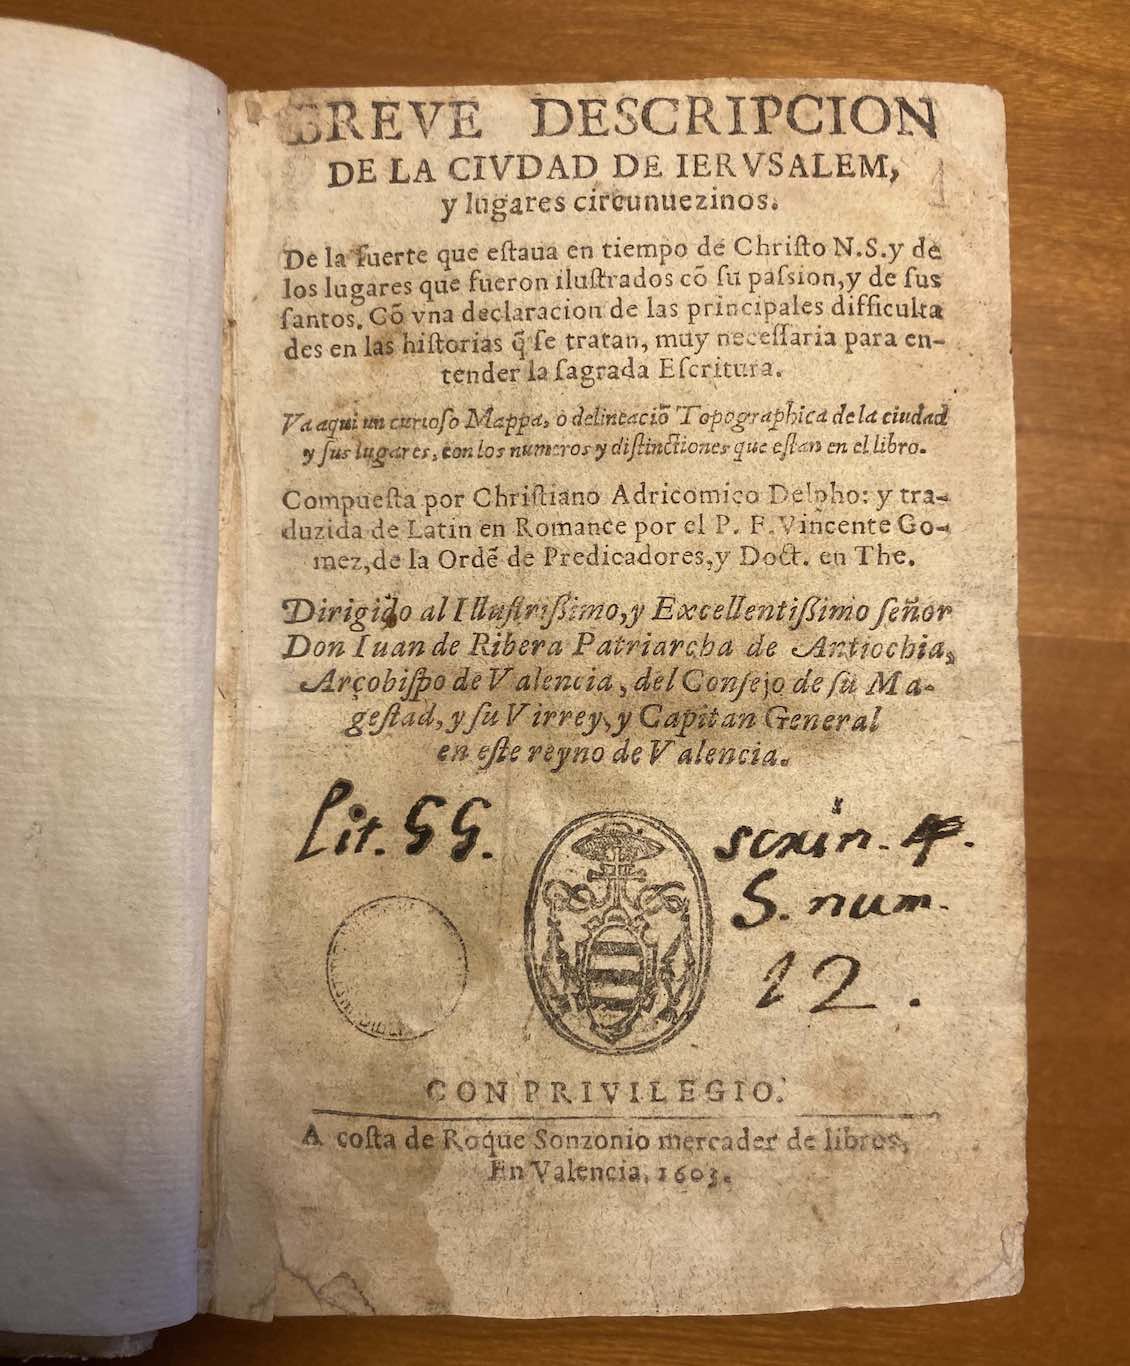 BREVE DESCRIPCION
DE LA CIVDAD DE IERVSALEM,
y lugares circunuezinos.
De la ſuerte que eſtaua en tiempo de Chriſto N.S. y de
los lugares que fueron iluſtrados cõ ſu paſsion, y de ſus
ſantos. Cõ vna declaracion de las principales difficulta
des en las hiſtorias q̃ ſe tratan, muy neceſſaria para en-
tender la ſagrada Eſcritura.
Va aqui un curioſo Mappa, o delineaciõ Topographica de la ciudad
y ſus lugares, con los numeros y diſtinctiones que eſtan en el libro.
Compueſta por Chriſtiano Adricomico Delpho: y tra-
duzida de Latin en Romance por el P. F. Vincente Go-
mez, de la Ordẽ de Predicadores, y Doct. en The.
Dirigido al Illuſtriſsimo, y Excellentiſsimo ſeñor
Don Iuan de Ribera Patriarcha de Antiochia,
Arçobiſpo de Valencia, del Conſejo de ſu Ma-
geſtad, y ſu Virrey, y Capitan General
en eſte reyno de Valencia.
Lit. GG.
scrin. 4.
S. num.
12.
CON PRIVILEGIO.
A coſta de Roque Sonzonio mercader de libros,
En Valencia, 1603.